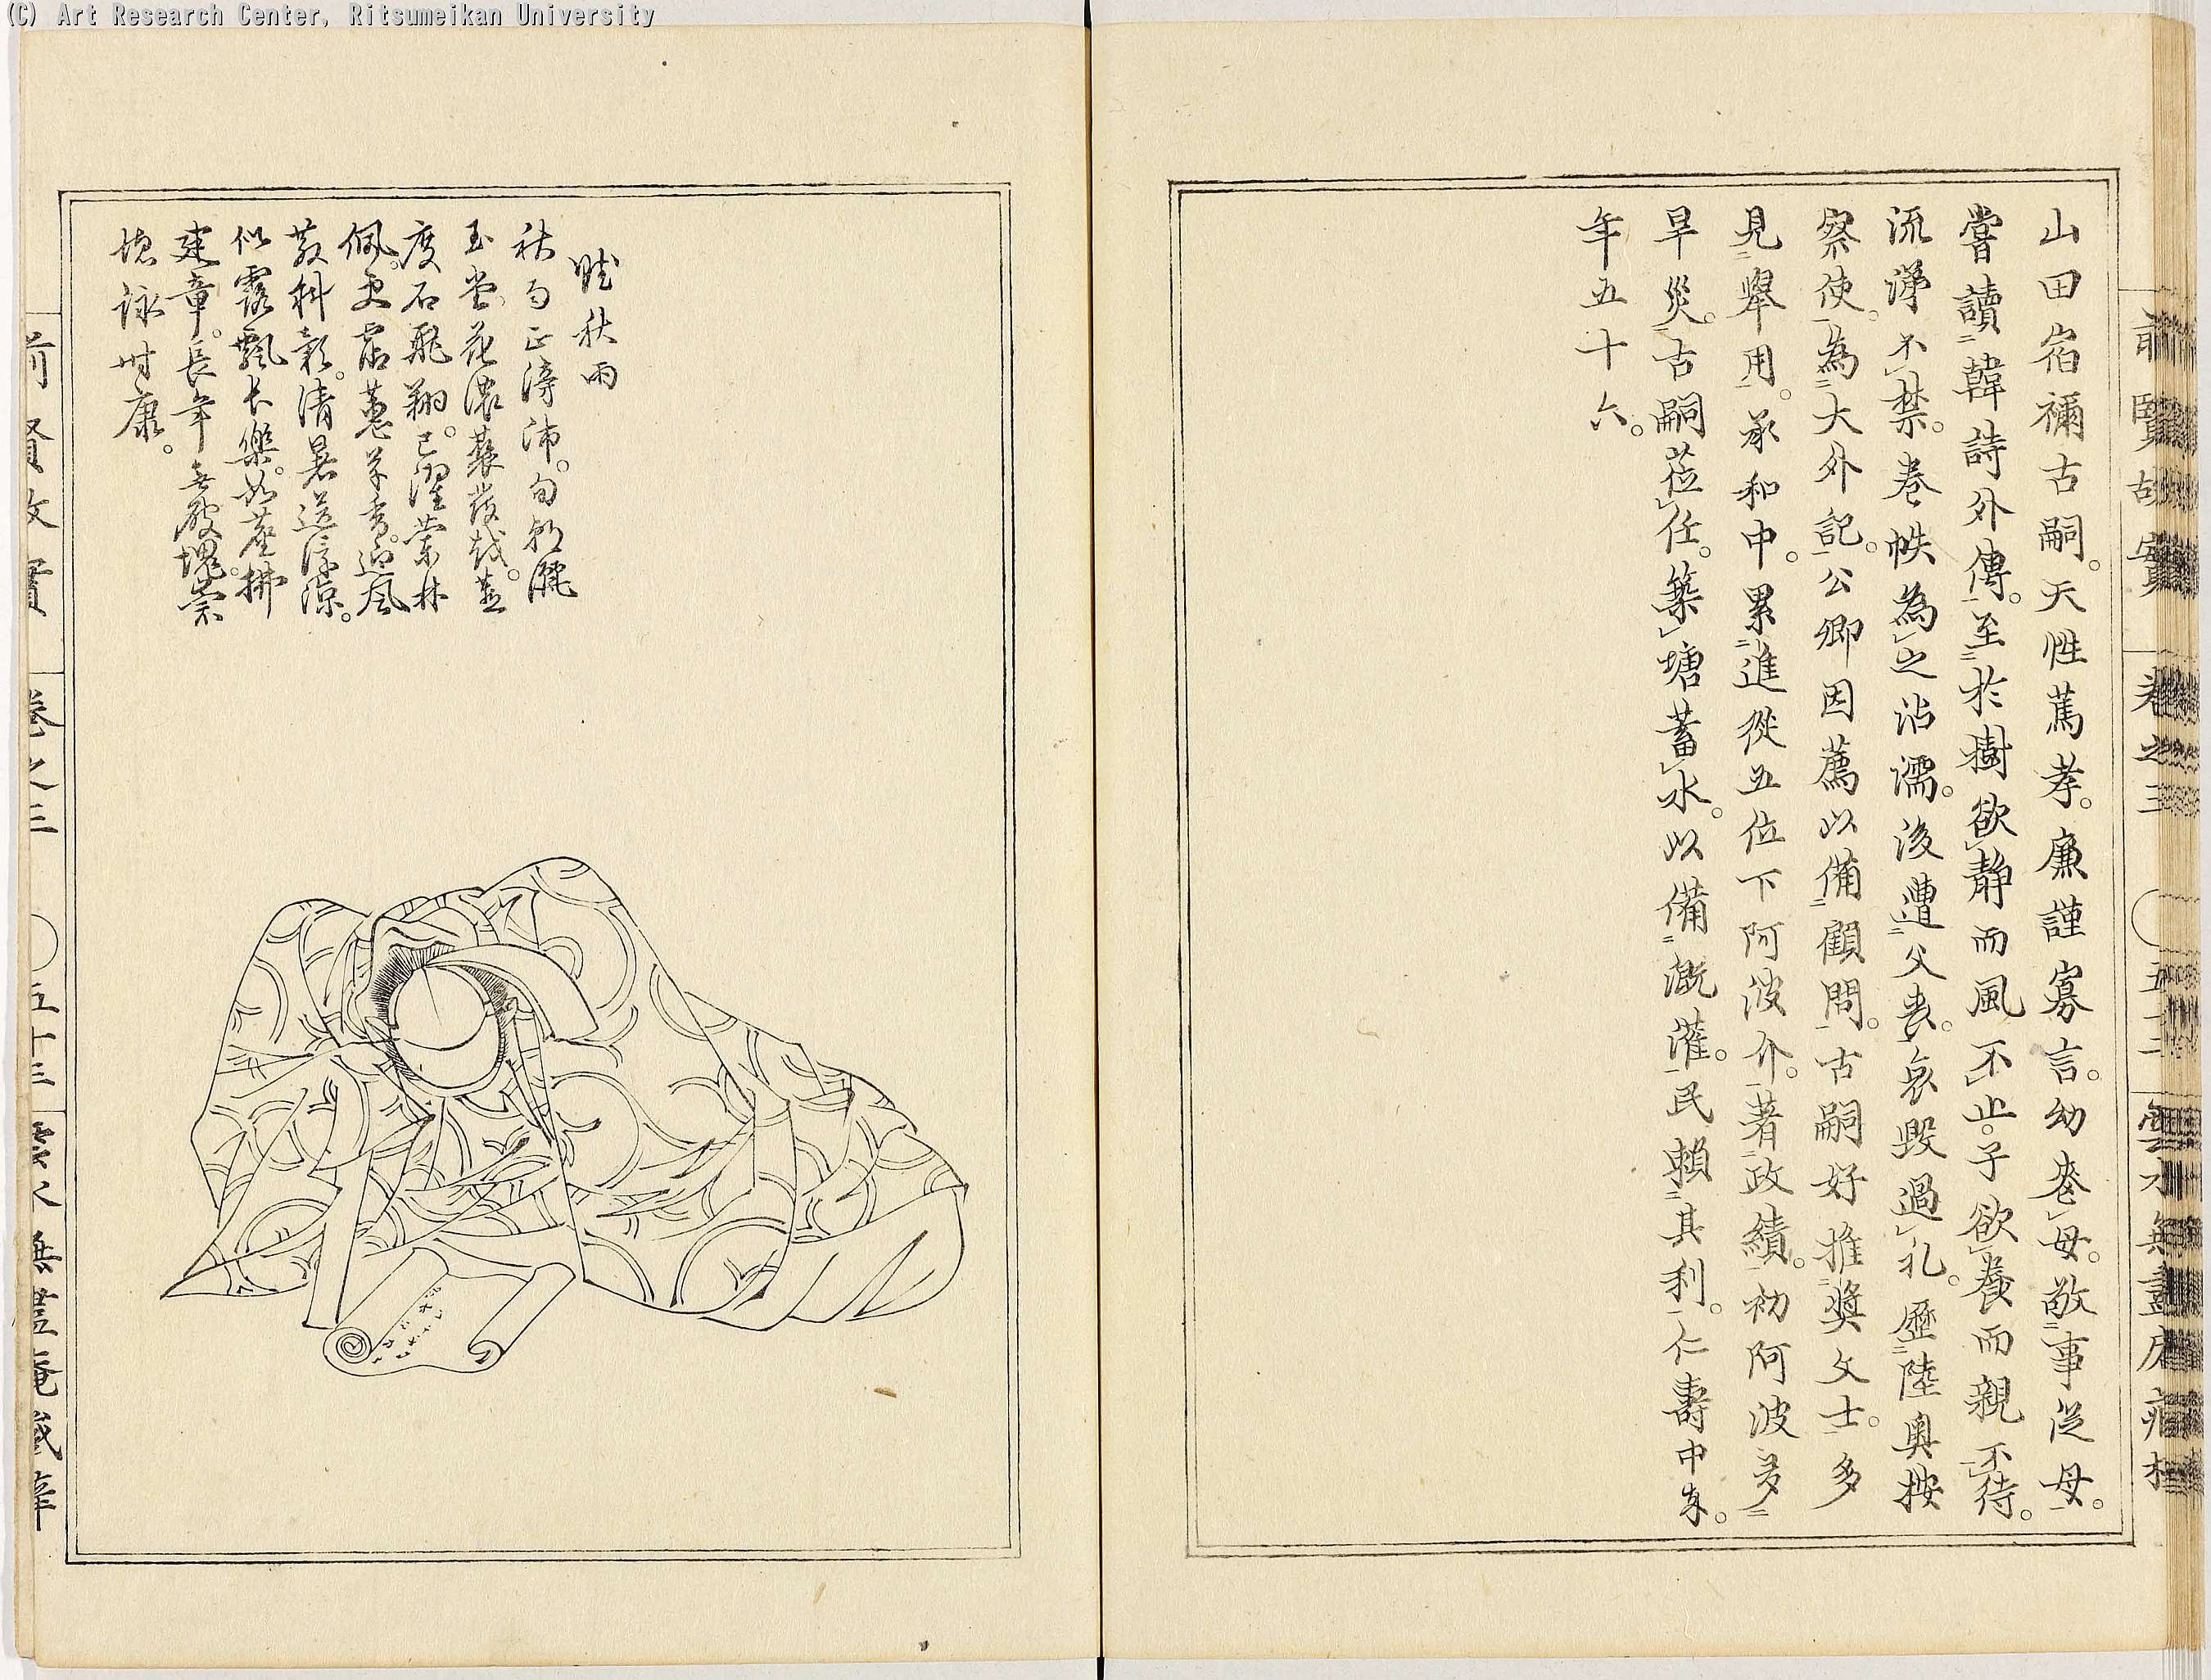 (C) Art Research Center, Ritsumeikan University
山田宿禰古嗣。天性篤孝。廉謹寡言。幼喪母。敬事從母。
嘗讀韓詩外傳。至於樹欲静而風不止。子欲養而親不待。
流涕不禁。卷帙為之沾濡。後遭父喪。哀毀過礼。歴陸奥按
察使。為大外記。公卿因薦以備顧問。古嗣好推奬文士。多
見舉用。承和中。累進從五位下阿波介。著政績。初阿波多
旱災。古嗣莅任。築塘蓄水。以備漑灌。民頼其利。仁壽中卒。
年五十六。
賦秋雨
秋旬正滂沛。旬氣灑
玉堂。花濃裝發越。蓋
度石飛翔。已濯叢林
佩。更霑蕙草香。迎風
散斜影。清暑送浮涼。
似露飄長樂。如塵拂
建章。長年無破塊。崇
德詠時康。
前賢故實 卷之三 五十三